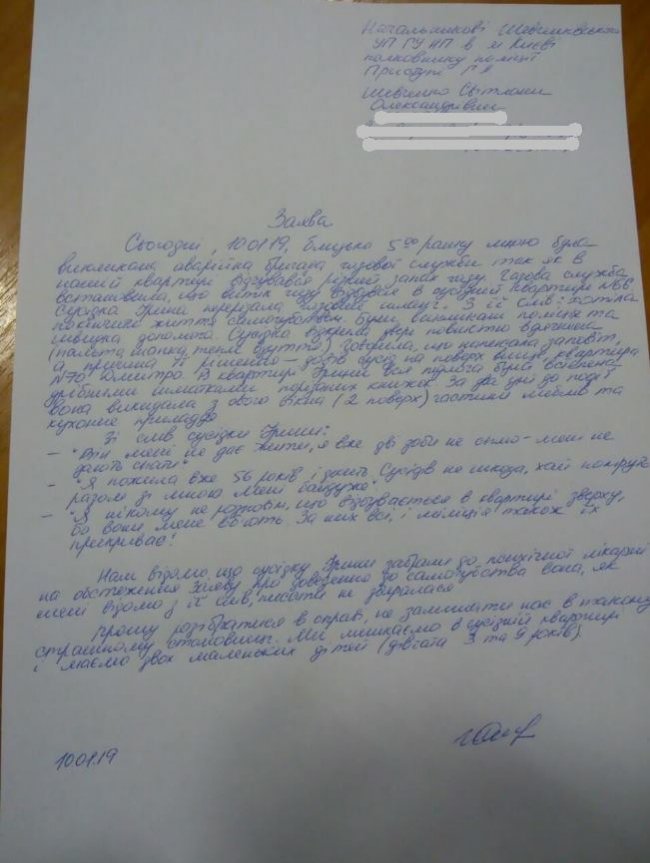 Начальникові Шевченківського
УП ГУ НП в м Києві
полковнику поліції
П. А
Шевченко Світлани
Олександрівни
Заява
Сьогодні, 10.01.19, близько 5⁰⁰ ранку мною була
викликана аварійна бригада газової служби так як в
нашій квартирі відчувався різкий запах газу. Газова служба
встановила, що витік газу відбувся в сусідній квартирі №66
Сусідка Ірина перекрила газовий З її слів: хотіла
покінчити життя самогубством. Були викликані поліція та
швидка допомога. Сусідка відкрила двері повністю вдягнена
(пальто, шапку, теплі взуття). Говорила, що написала заповіт,
а причина її вчинку – дії сусід на поверх вище, квартира
№70 Дмитра. В квартирі Ірини вся підлога була встелена
дрібними шматками порваних книжок. За два дні до події
вона викидала з свого вікна (2 поверх) частини меблів та
кухонне приладдя
Зі слів сусідки Ірини:
– "Він мені не дає жити, я вже дві доби не сплю – мені не
дають спати"
– "Я пожила вже 56 років і досить. Сусідів не шкода, хай помруть
разом зі мною. Мені байдуже"
– "Я нікому не розповім, що відбувається в квартирі зверху,
бо вони мене вб'ють. За них всі, і міліція також їх
прикриває!
Нам відомо, що сусідку Ірину забрали до психічної лікарні
на обстеження. Заяву про доведення до самогубства вона, як
мені відомо з її слів, писати не збиралася
Прошу розібратися в справі, не залишати нас в такому
страшному становищі. Ми мешкаємо в сусідній квартирі
і маємо двох маленьких дітей (дівчата 3 та 9 років).
10.01.19